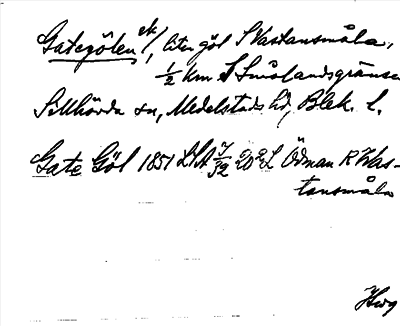 Gategölen ek/, liten göl S Västansmåla,
1/2 km S Smålandsgränsen
Sillhövda sn, Medelstads hd, Blek. l.
Gate Göl 1851 LSA 7/32 20 L Ödman R Wäs-
tansmåla